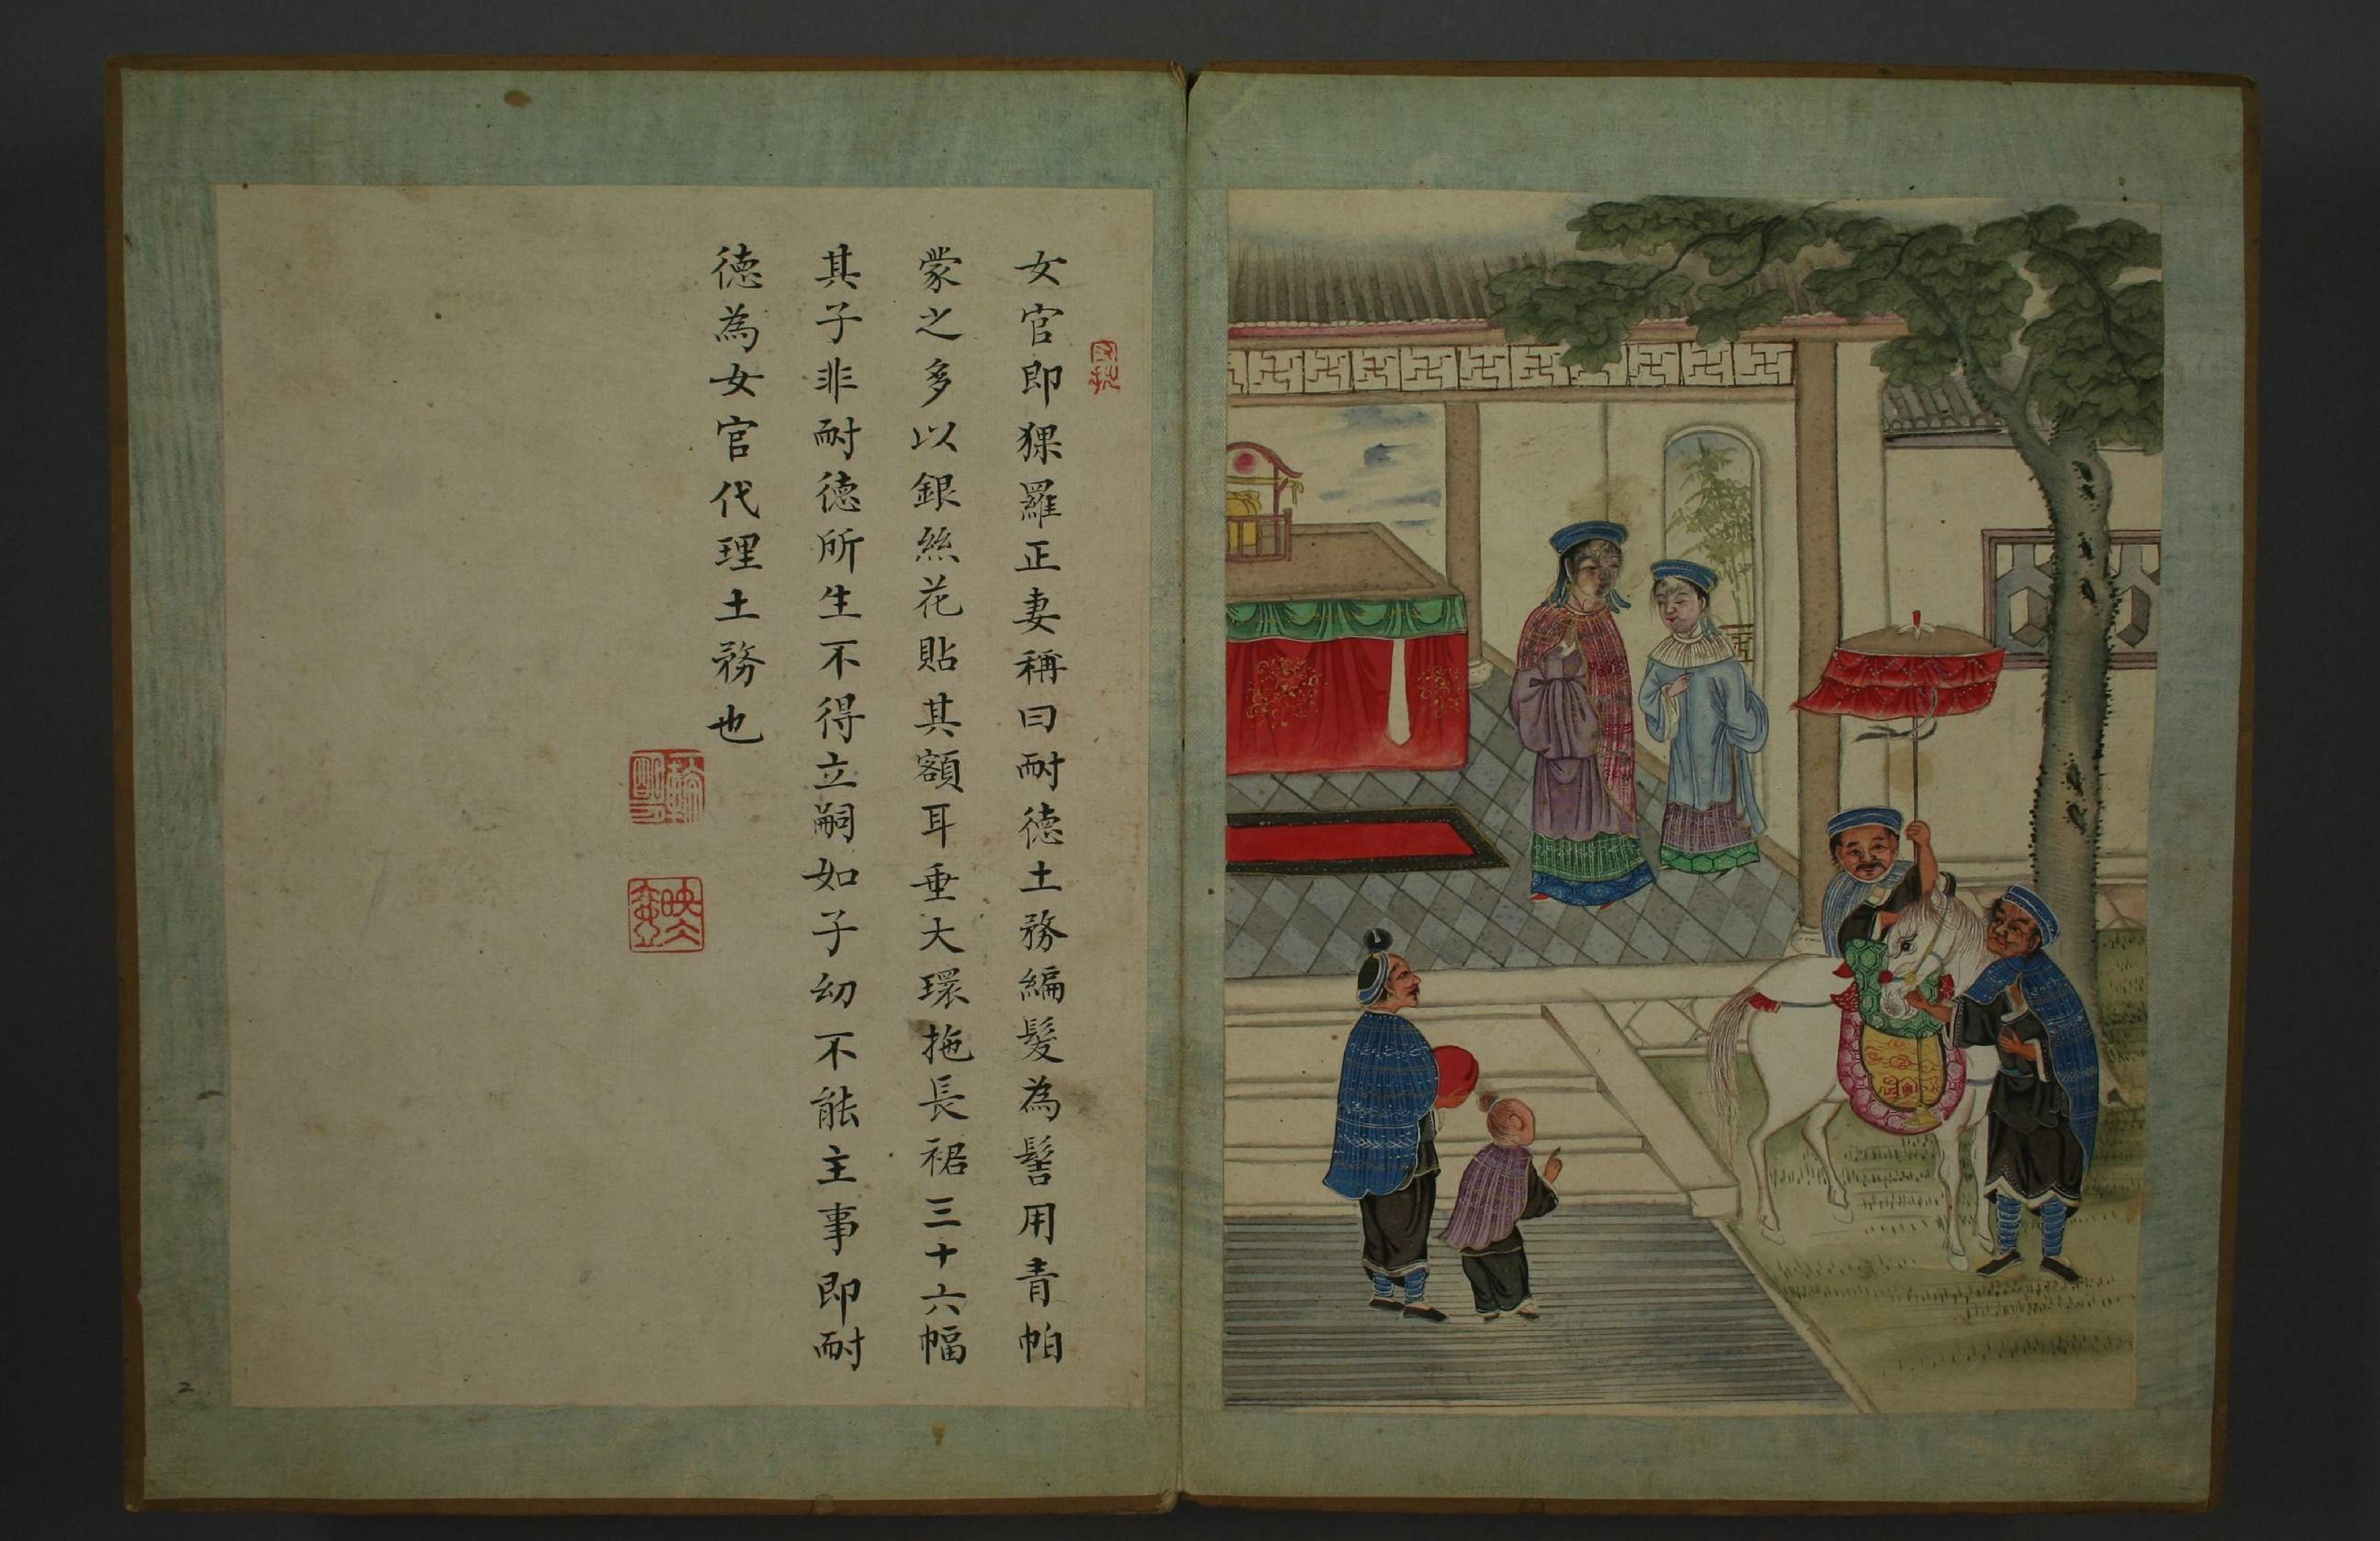 女官即猓羅正妻稱曰耐德土務編髮為髻用青帕
蒙之多以銀絲花貼其額耳垂大環拖長裙三十六幅
其子非耐德所生不得立嗣如子幼不能主事即耐
德為女官代理土務也